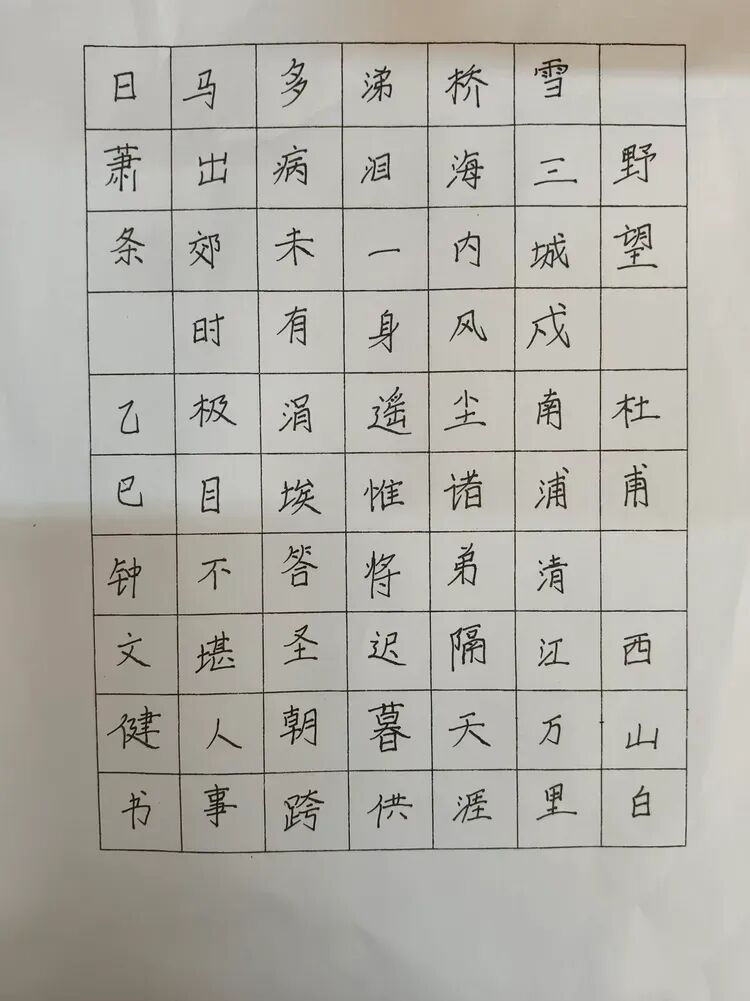 野望 杜甫 西山白
雪三城戍南浦清江万里
桥海内风尘诸弟隔天涯
涕泪一身遥惟将迟暮供
多病未有涓埃答圣朝跨
马出郊时极目不堪人事
日萧条 乙巳钟文健书